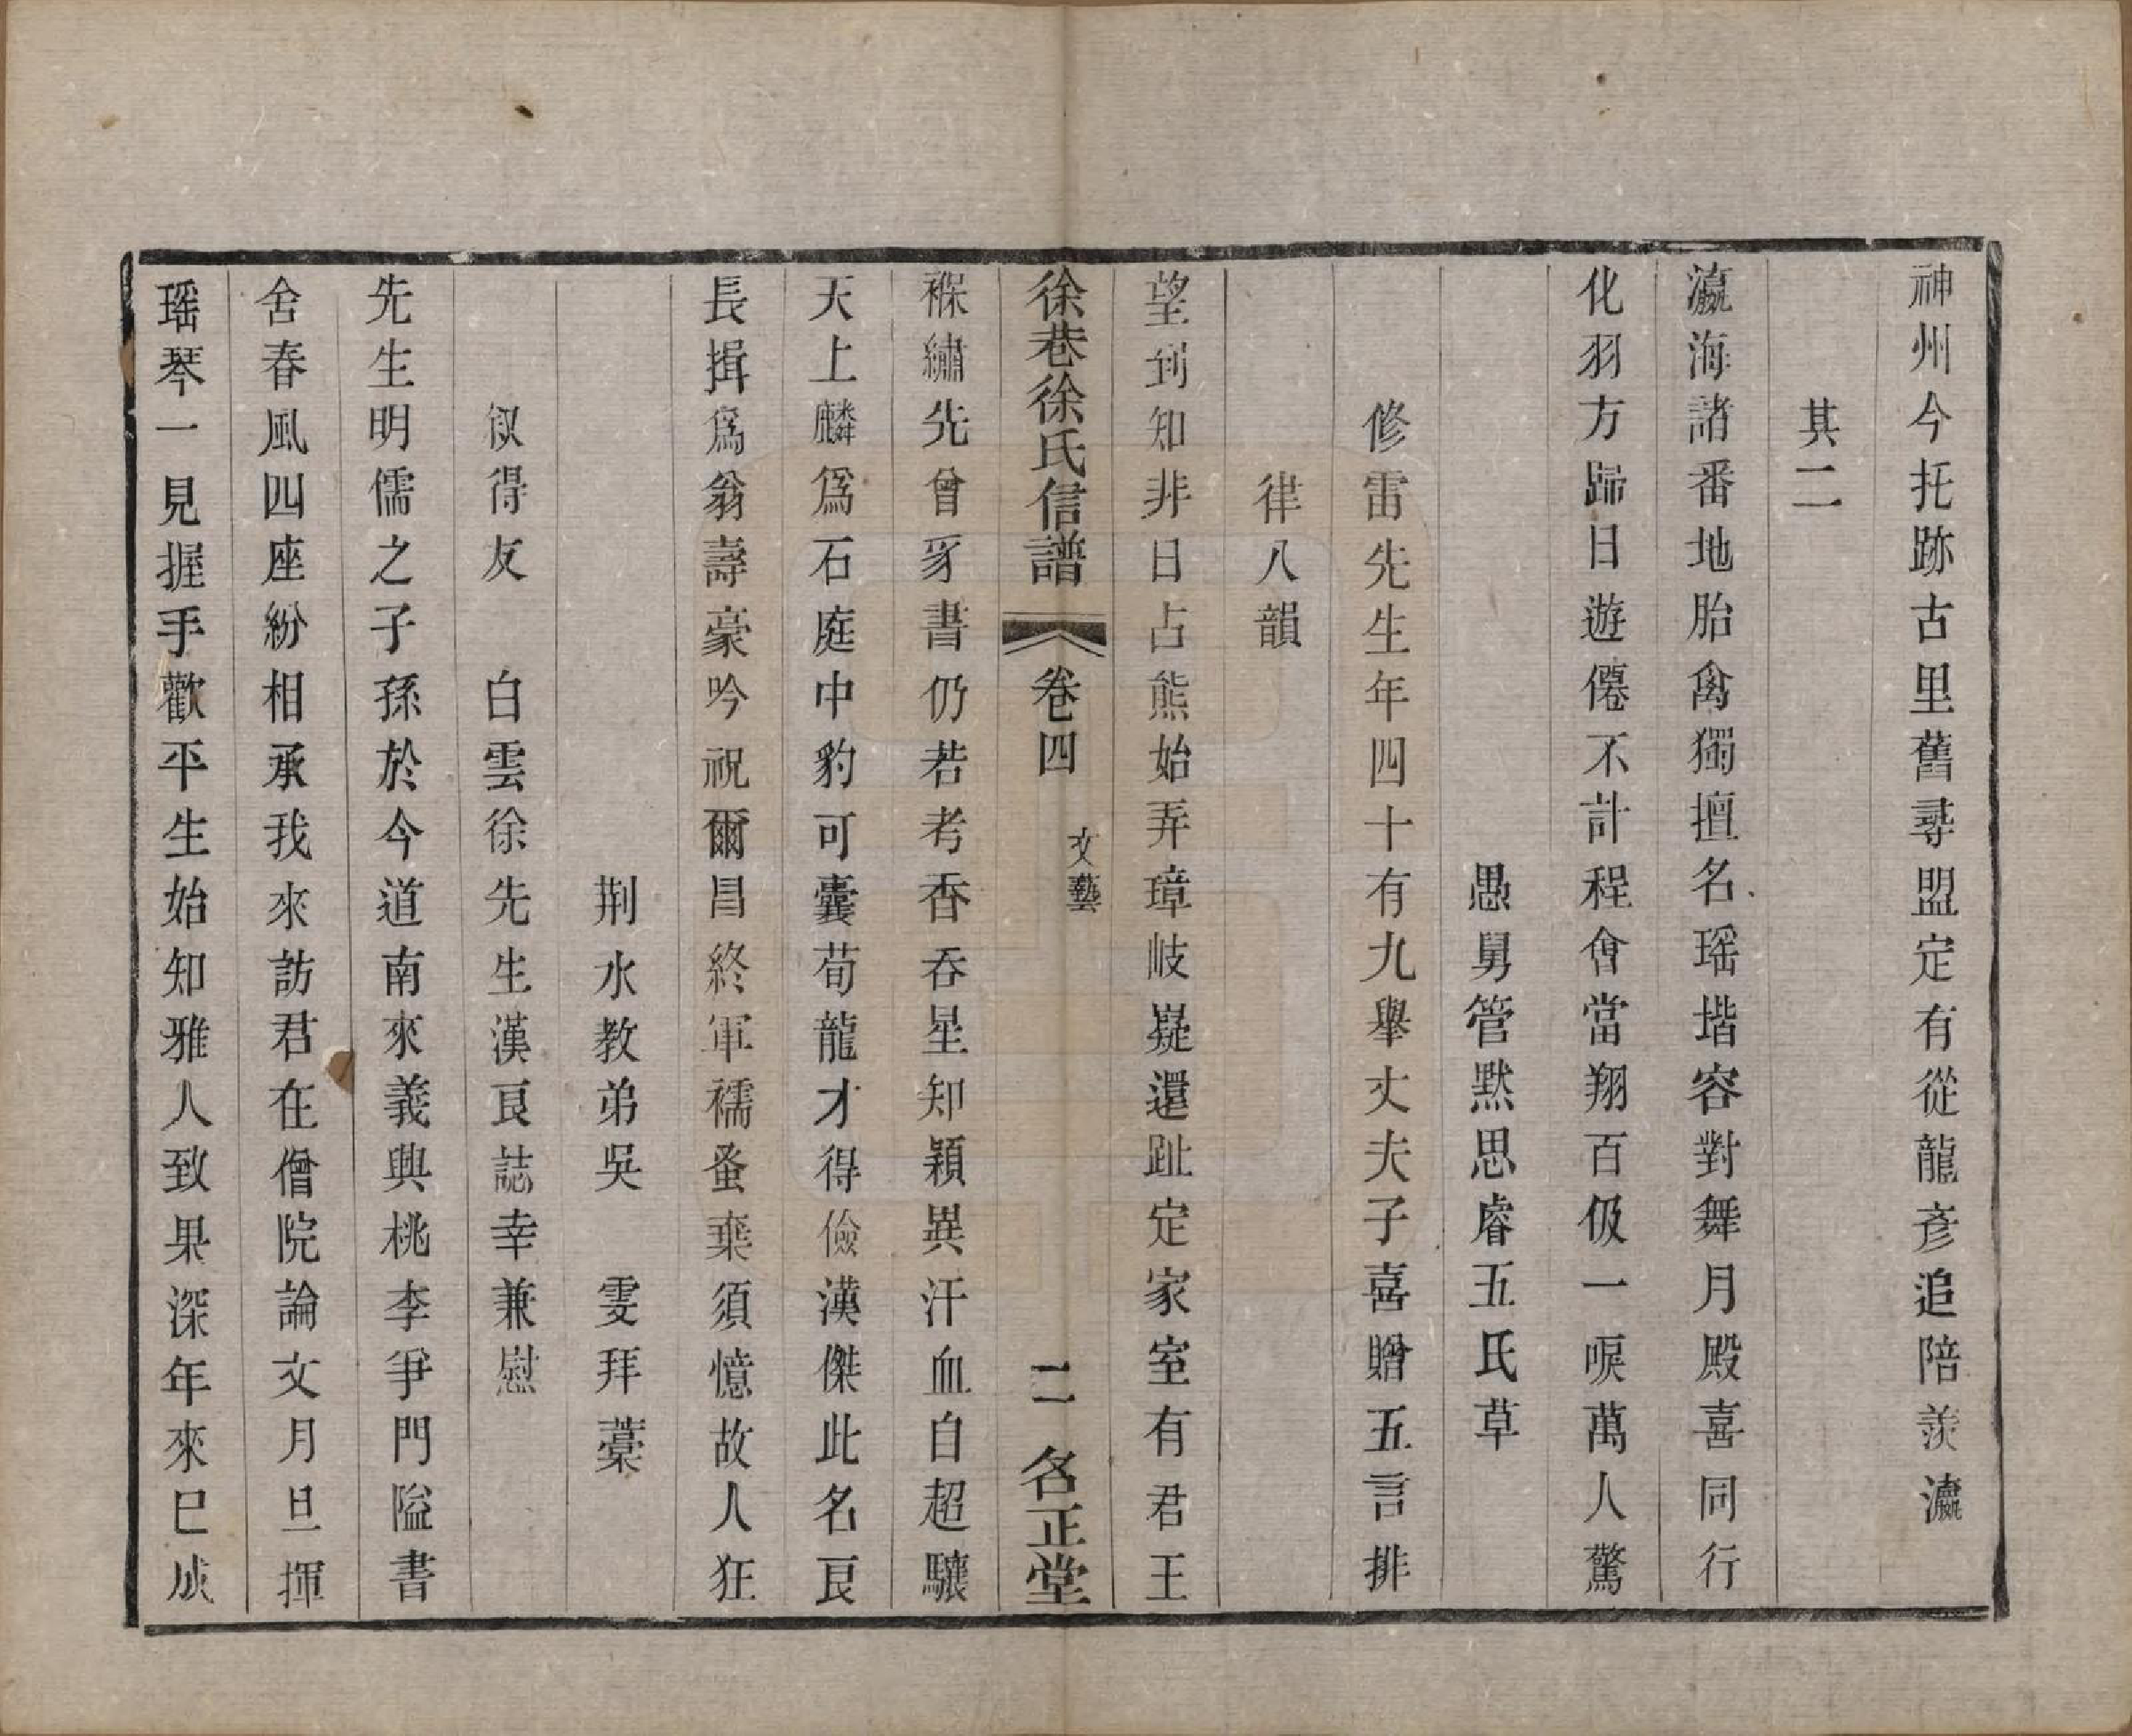 神州今托跡古里舊尋盟定有從龍彥追陪羨瀛
其二
瀛海諸番地胎禽獨擅名瑶堦容對舞月殿喜同行
化羽方歸日遊僊不計程會當翔百伋一唳萬人驚
愚舅管默思睿五氏草
修雷先生年四十有九舉丈夫子喜贈五言排
律八韻
望到知非日占熊始弄璋岐嶷還趾定家室有君王
徐巷徐氏信譜 卷四 文藝 二 名正堂
褓繡先曾豸書仍若考香吞星知穎異汗血自超驤
天上麟爲石庭中豹可囊荀龍才得儉漢傑此名良
長揖爲翁壽豪吟祝爾昌終軍襦蚤棄須憶故人狂
荆水教弟吳 雯拜藁
叙得友 白雲徐先生漢良誌幸兼慰
先生明儒之子孫於今道南來義興桃李爭門隘書
舍春風四座紛相承我來訪君在僧院論文月旦揮
瑶琴一見握手歡平生始知雅人致果深年來巳成